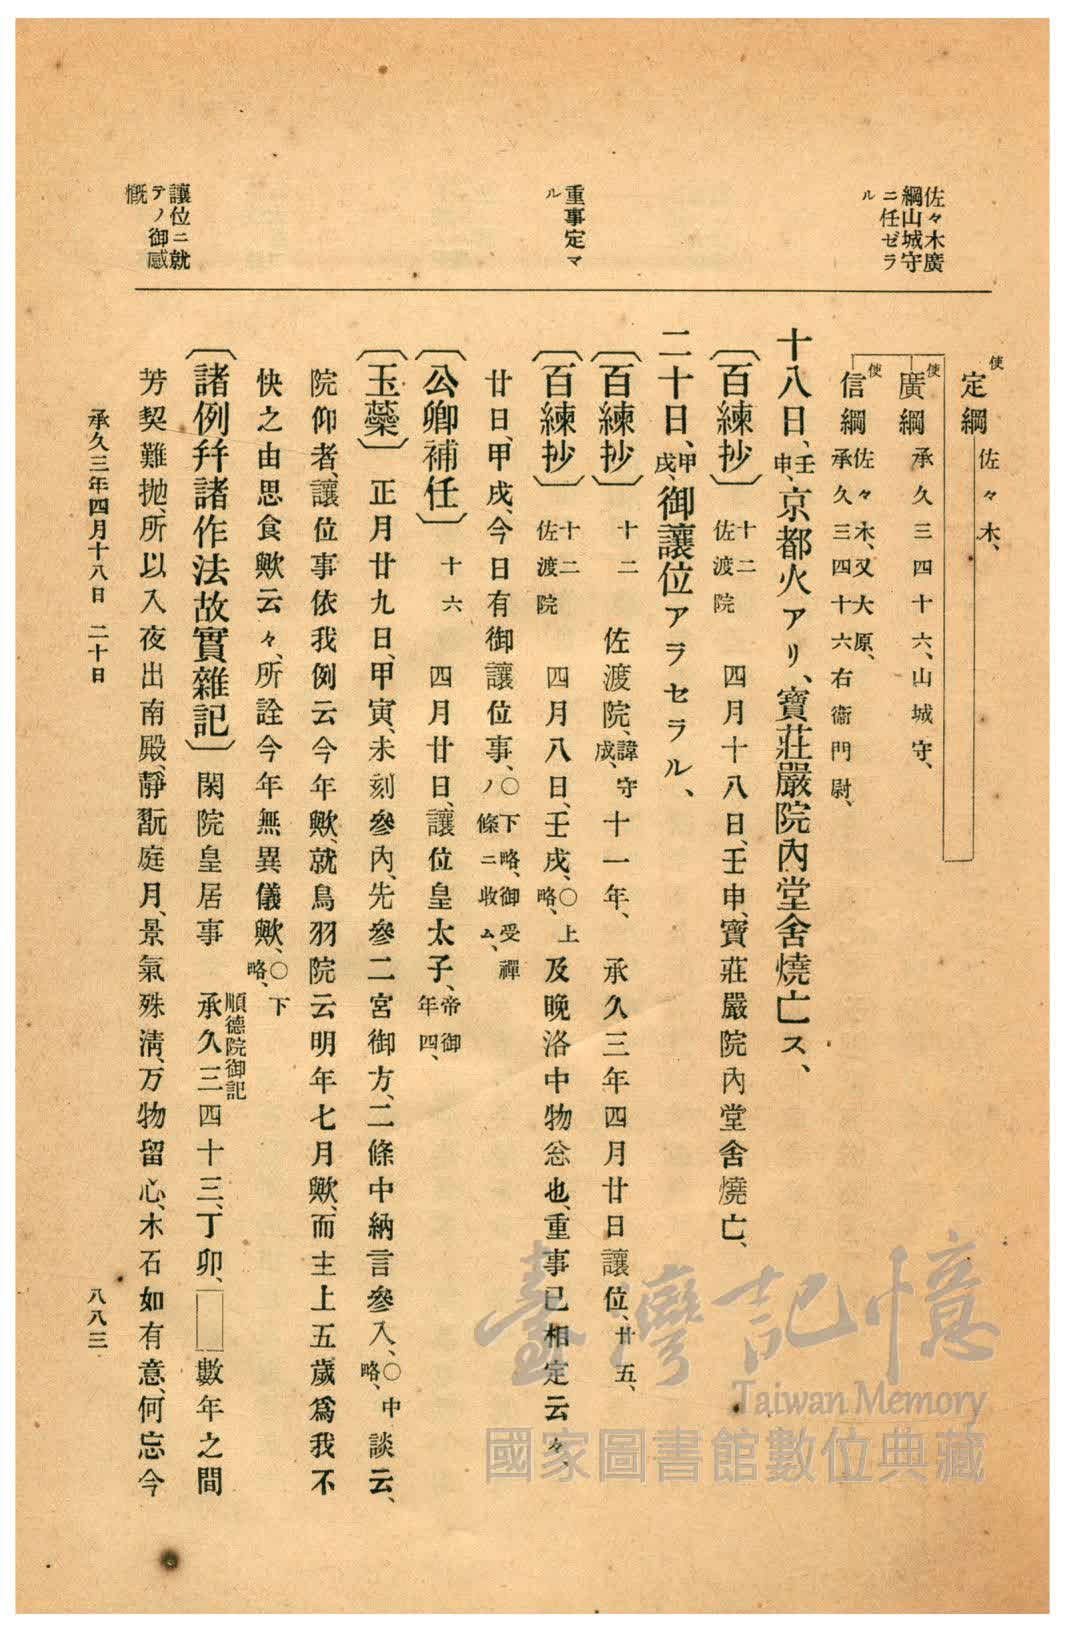 佐々木廣
綱山城守
ニ任ゼラ
ル
重事定マ
ル
讓位ニ就
テノ御感
慨
使
定綱 佐々木、
使
廣綱 承久三四十六、山城守、
使
信綱 佐々木、又大原、
承久三四十六右衞門尉、
十八日、壬申、京都火アリ、寶莊嚴院內堂舍燒亡ス、
〔百練抄〕十二佐渡院 四月十八日、壬申、寶莊嚴院內堂舍燒亡、
二十日、甲戌、御讓位アラセラル、
〔百練抄〕十二 佐渡院、諱守成、十一年、 承久三年四月廿日讓位、廿五、
〔百練抄〕十二佐渡院 四月八日、壬戌、○上略、及晩洛中物忩也、重事已相定云々、
廿日、甲戌、今日有御讓位事、○下略、御受禪ノ條ニ收ム、
〔公卿補任〕十六 四月廿日、讓位皇太子、帝御年四、
〔玉蘂〕正月廿九日、甲寅、未刻參內、先參二宮御方、二條中納言參入、○中略、談云、
院仰者、讓位事依我例云今年歟、就鳥羽院云明年七月歟、而主上五歲爲我不
快之由思食歟云々、所詮今年無異儀歟、○下略、
〔諸例幷諸作法故實雜記〕閑院皇居事 順德院御記
承久三四十三、丁卯、□數年之間
芳契難抛、所以入夜出南殿、靜翫庭月、景氣殊淸、万物留心、木石如有意、何忘今
承久三年四月十八日 二十日
八八三
臺灣記憶
Taiwan Memory
國家圖書館數位典藏